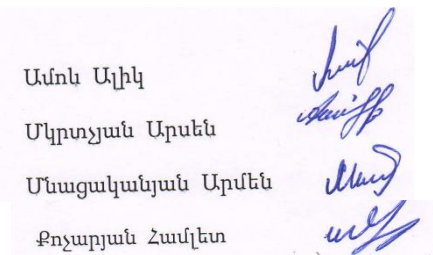 Ամոև Ալիկ
Մկրտչյան Արսեն
Մնացականյան Արմեն
Քոչարյան Համլետ